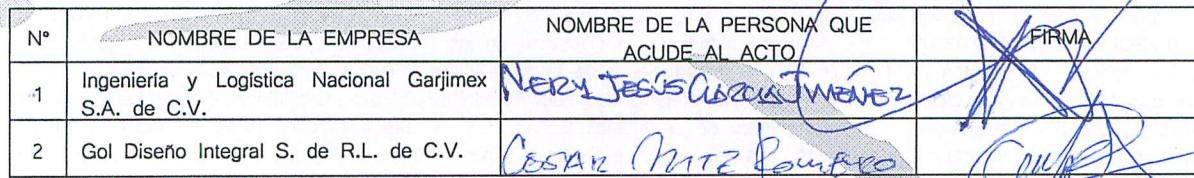 N° NOMBRE DE LA EMPRESA NOMBRE DE LA PERSONA QUE ACUDE AL ACTO FIRMA
1 Ingeniería y Logística Nacional Garjimex S.A. de C.V. NERY JESÚS GARCIA JIMENEZ
2 Gol Diseño Integral S. de R.L. de C.V. CESAR MTZ ROMERO